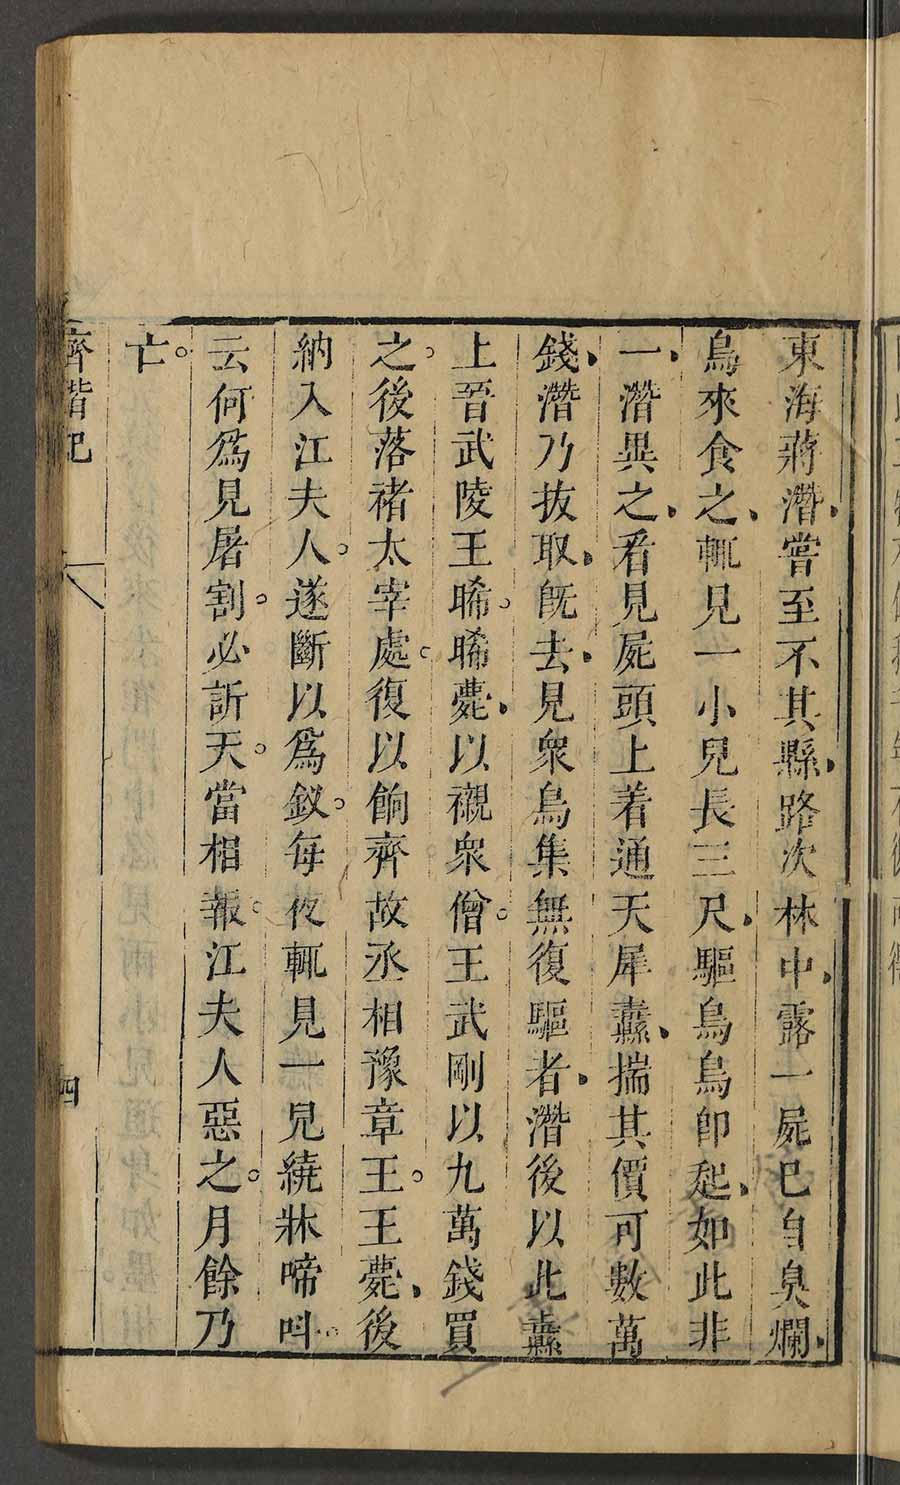 東海蔣潛嘗至不其縣路次林中露一屍已自臭爛
烏來食之輒見一小兒長三尺驅烏烏卽起如此非
一潛異之看見屍頭上着通天犀纛揣其價可數萬
錢潛乃拔取旣去見衆烏集無復驅者潛後以此纛
上晉武陵王晞晞薨以襯衆僧王武剛以九萬錢買
之後落褚太宰處復以餉齊故丞相豫章王王薨後
納入江夫人遂斷以爲釵每夜輒見一兒繞牀啼叫
云何爲見屠割必訴天當相報江夫人惡之月餘乃
亡
齊諧記
四